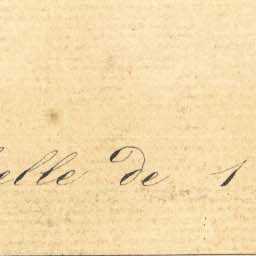 elle de 1